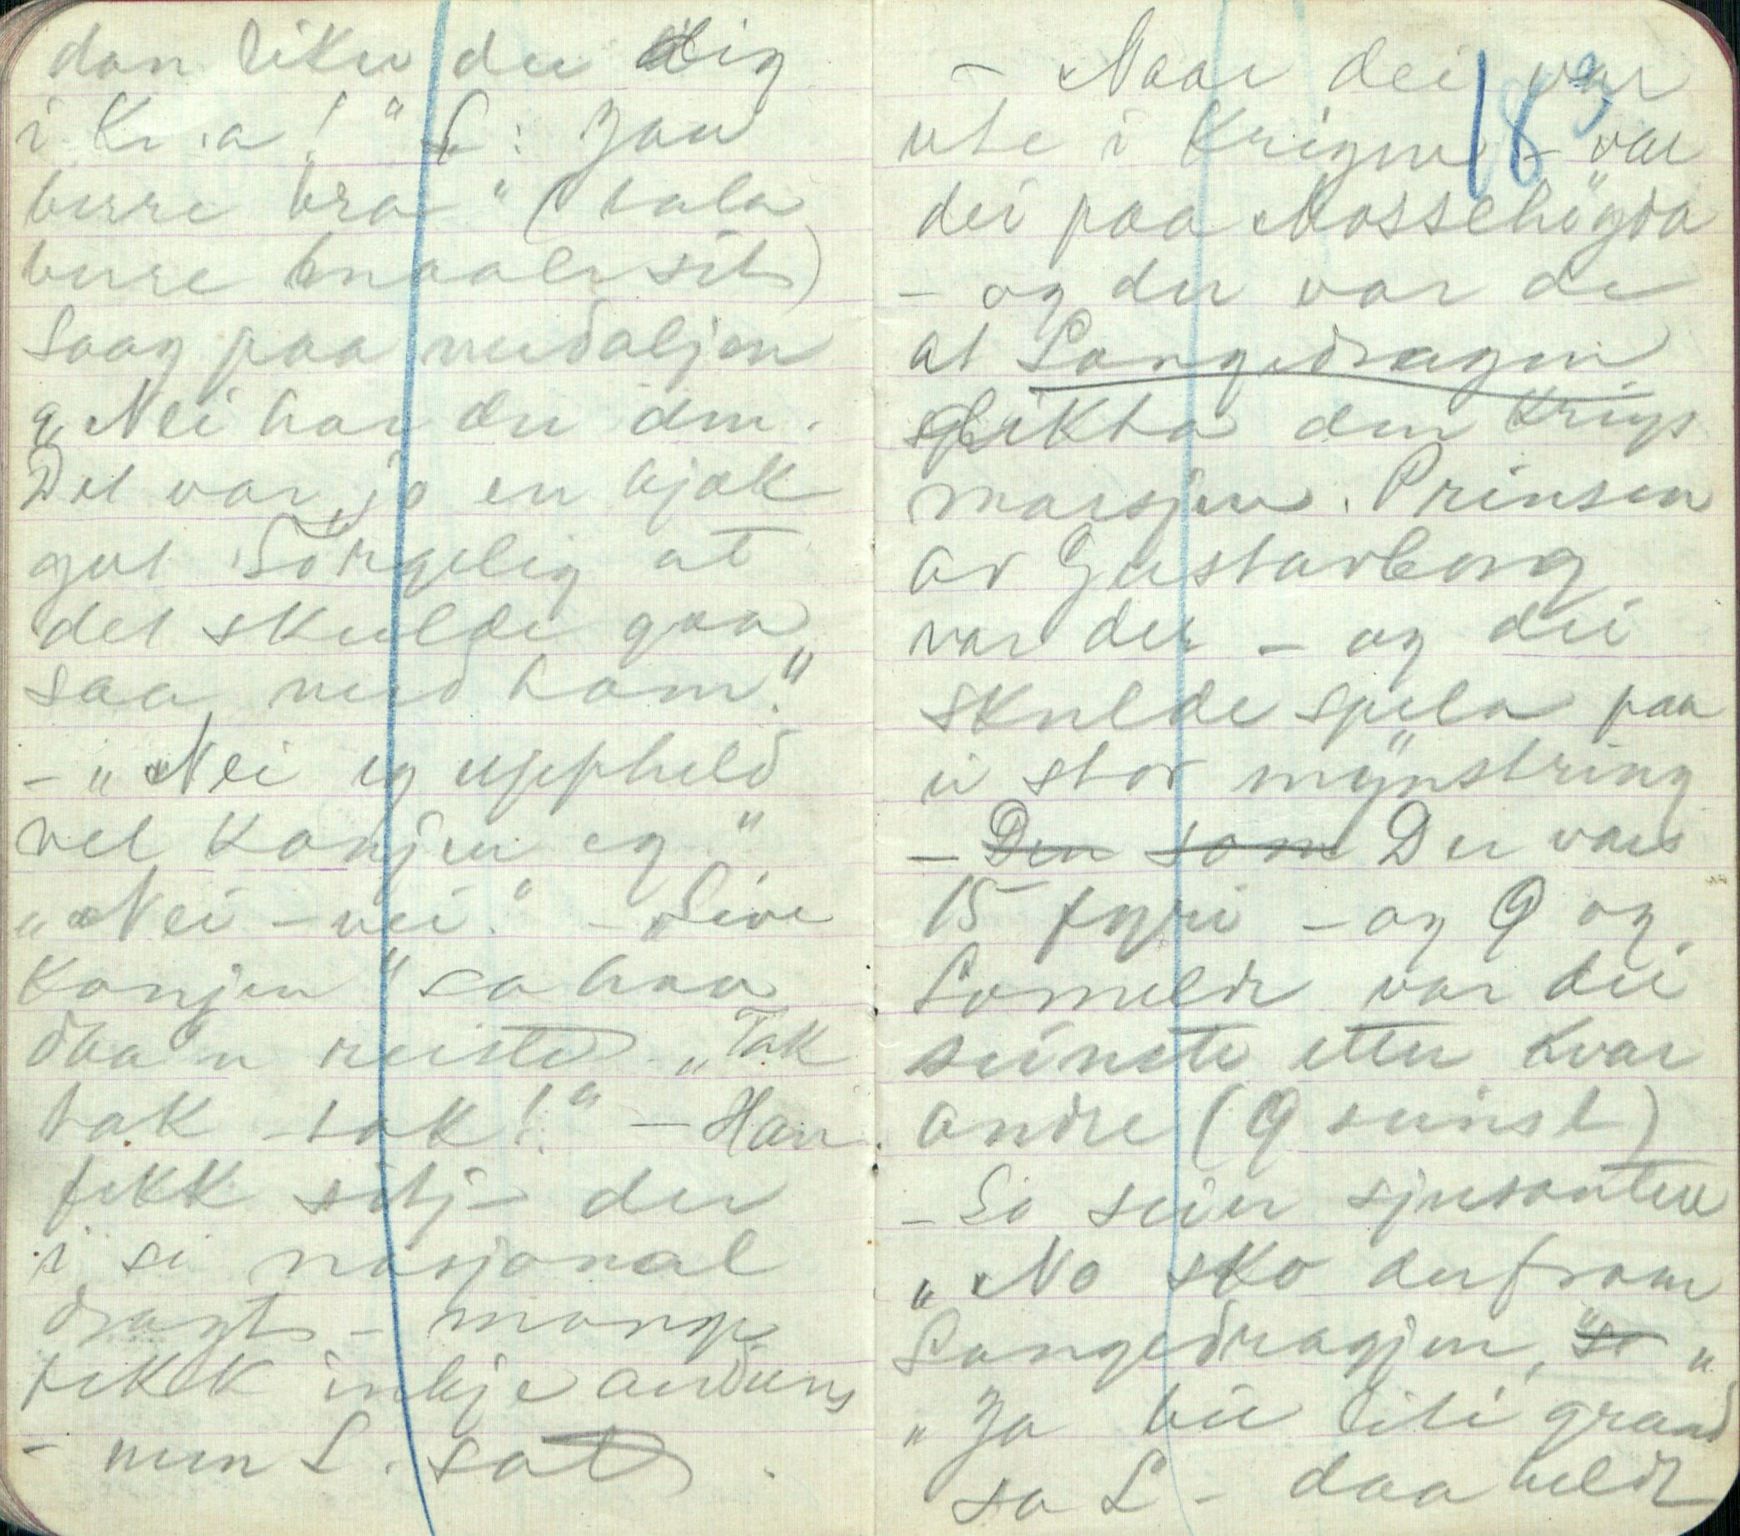 dan liker du dig
i Kr.a!" L: Jau
berre bra" (tala
berre maale sit)
Saag paa medaljen
"Nei har du den.
Det var jo en kjæk
gut Sörgelig at
det skulde gaa
saa med ham."
- "Nei eg uppheld
vel Konjen eg"
"Nei - nei." - Live
Konjen" sa han
daa n reiste. "Tak
tak - tak!" - Han
fekk sitja der
i si nasjonal
dragt - mange
fekk inkje audiens
- men L. sat.
- Naar dei var
183
ute i Krigen - var
dei paa Mossehögda
- og der var de
at Langedragen
slikta den Krigs
marsjen. Prinsen
av Gustavborg
var der - og dei
skulde spela paa
ei stor mynstring
- Den som Der var
15 fyri - og 9 og
Lomelde var dei
seinste etter kvar
andre (9 seinst)
- So seier sjusanten
"No sko derfram
Langedragjen, so "
"Ja bie liti grand
sa L - daa heldt